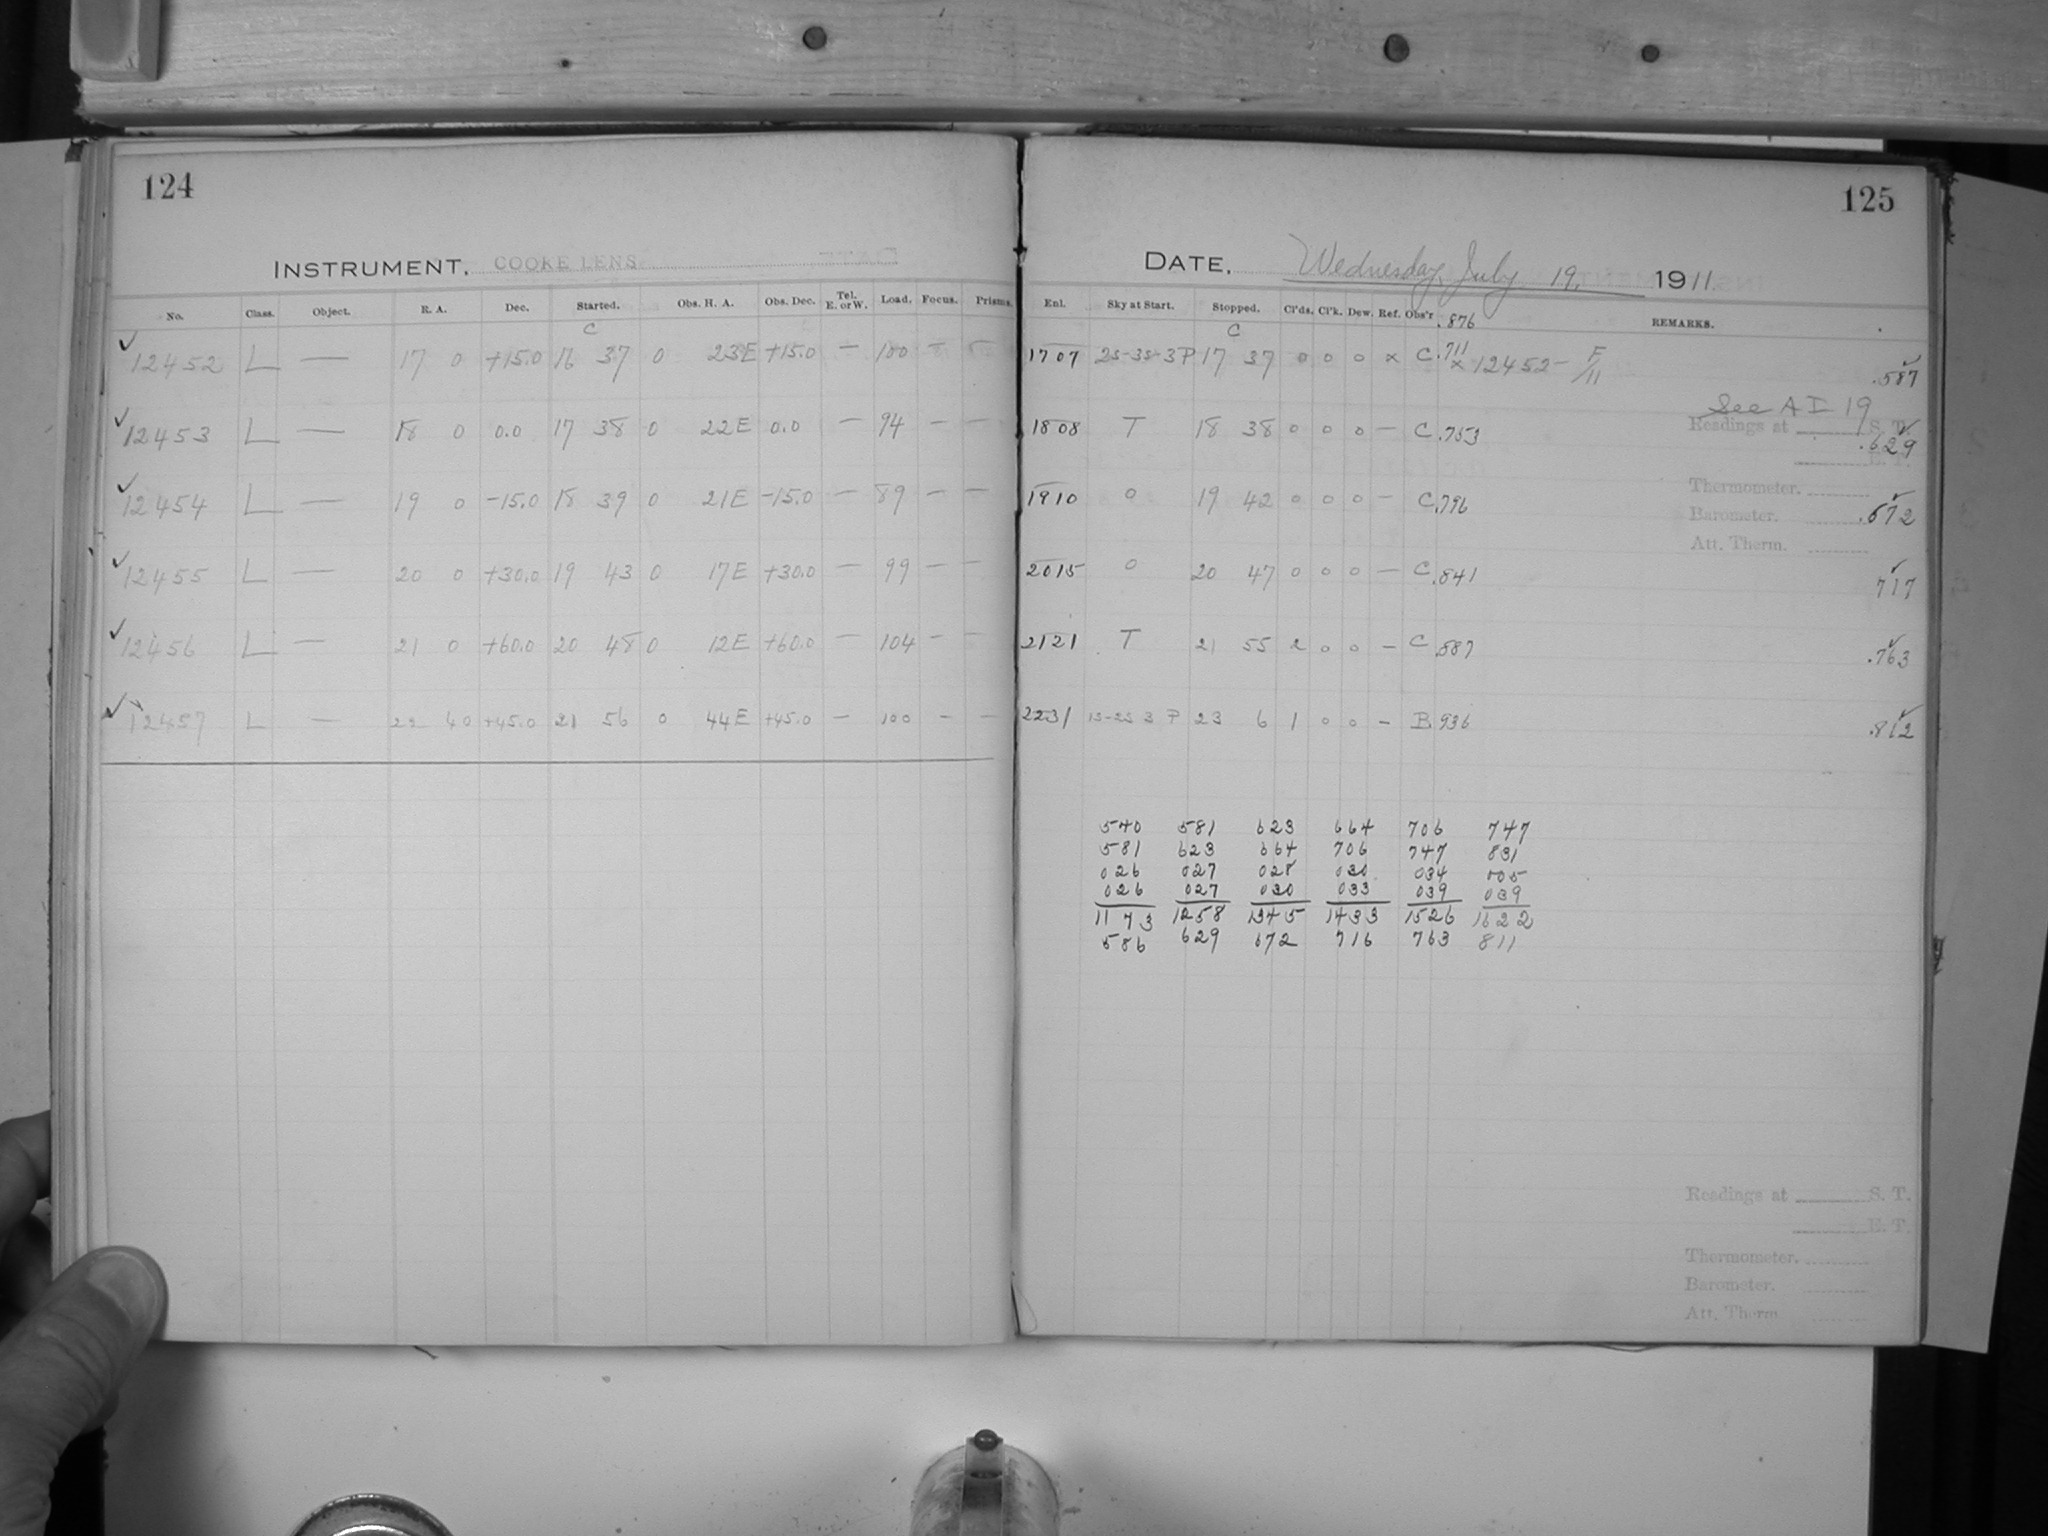 124
INSTRUMENT. COOKE LENS
No. Class. Object. R. A. Dec. Started. Obs. H. A. Obs. Dec. Tel. E. or W. Load. Focus. Prisms.
C
12452 L — 17 0 +15.0 16 37 0 23E +15.0 — 100 — —
12453 L — 18 0 0.0 17 38 0 22E 0.0 — 94 — —
12454 L — 19 0 -15.0 18 39 0 21E -15.0 — 89 — —
12455 L — 20 0 +30.0 19 43 0 17E +30.0 — 99 — —
12456 L — 21 0 +60.0 20 48 0 12E +60.0 — 104 — —
12457 L — 22 40 +45.0 21 56 0 44E +45.0 — 100 — —
125
DATE. Wednesday, July 19, 1911.
Enl. Sky at Start. Stopped. Cl'ds. Cl'k. Dew. Ref. Obs'r .876 REMARKS.
C
1707 2s-3s-3P 17 37 0 0 0 x C .711 x 12452 - F/11 .587
See A I 19
1808 T 18 38 0 0 0 — C .753 Readings at S. T. .629
E. T.
1910 0 19 42 0 0 0 — C .796 Thermometer.
Barometer. .672
Att. Therm.
2015 0 20 47 0 0 0 — C .841 717
2121 T 21 55 2 0 0 — C .887 .763
2231 1s-2s 3 P 23 6 1 0 0 — B .936 .812
540 581 623 664 706 747
581 623 664 706 747 831
026 027 028 030 034 005
026 027 030 033 039 039
1173 1258 1345 1433 1526 1622
586 629 672 716 763 811
Readings at S. T.
E. T.
Thermometer.
Barometer.
Att. Therm